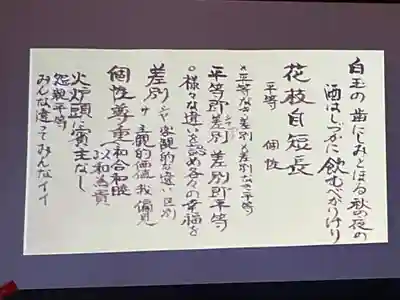 白玉の歯にしみとほる秋の夜の
酒はしづかに飲むべかりけり
花枝自短長
平等 個性
×平等なき差別×差別なき平等
平等即差別 差別即平等
○様々な違いを認め各々の幸福を
差別 シャ 客観的な違い 区別
サ 主観的価値 我 偏見
個性尊重 和合和睦
以和為貴
火炉頭に賓主なし
怨親平等
みんな違ってみんなイイ